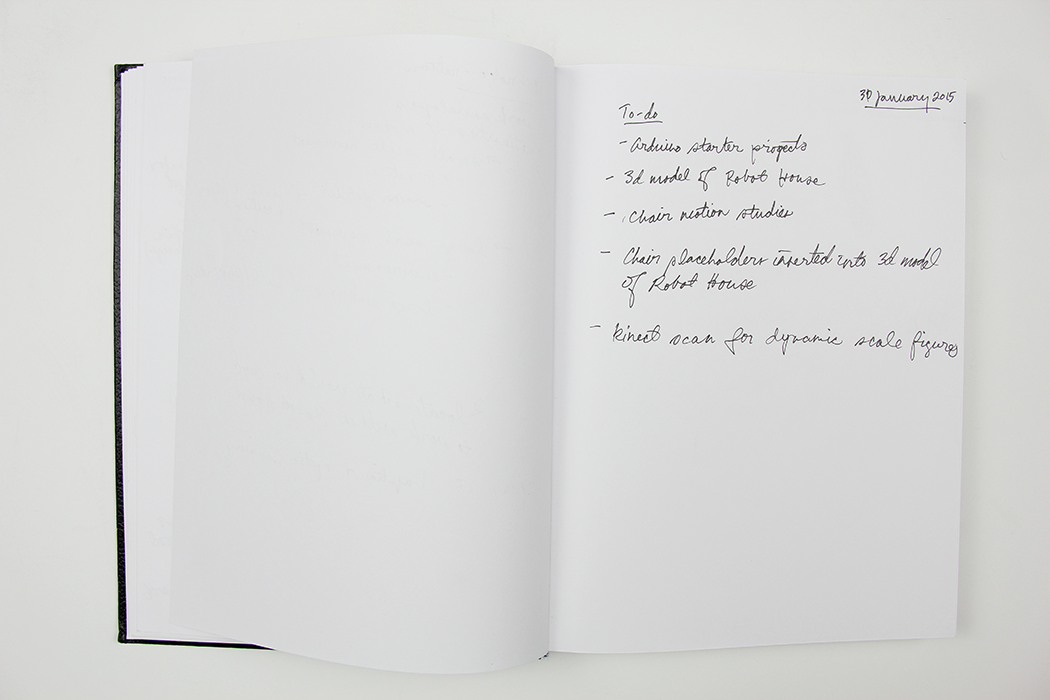 30 January 2015
To-do
- Arduino starter projects
- 3d model of Robot House
- Chair motion studies
- Chair placeholders inserted into 3d model
of Robot House
- kinect scan for dynamic scale figures